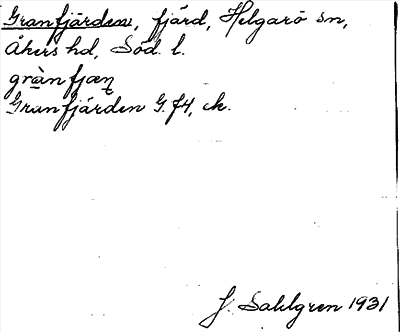 Granfjärden, fjärd, Helgarö sn,
Åkers hd, Söd. l.
grànfjæɳ
Granfjärden G. f4, ek.
J. Sahlgren 1931